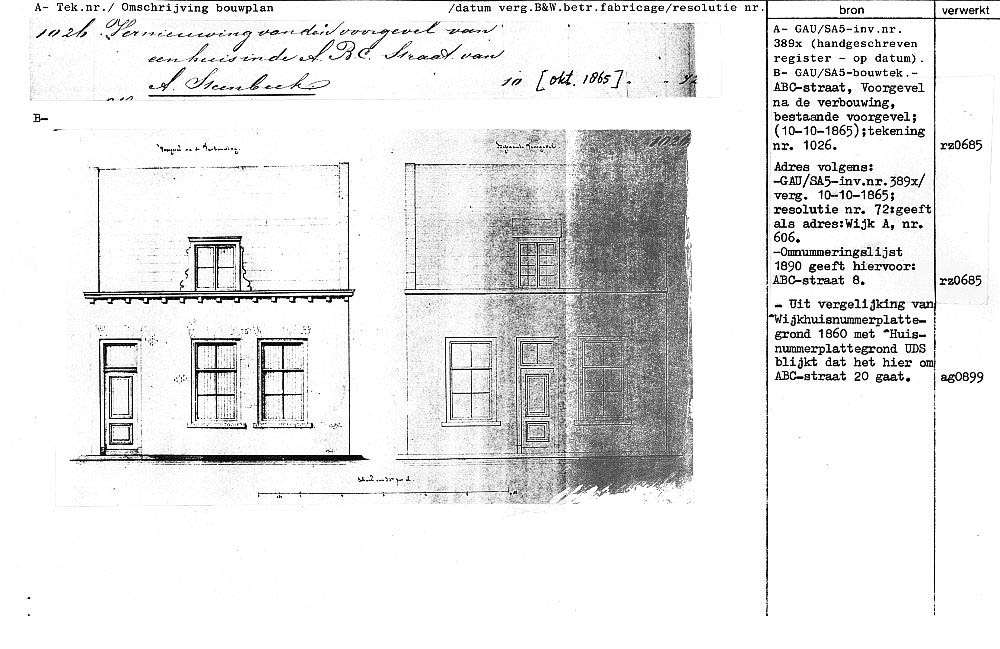 A- Tek.nr./ Omschrijving bouwplan /datum verg.B&W.betr.fabricage/resolutie nr.
1026 Vernieuwing van den voorgevel van
een huis in de A.B.C. Straat van
A. Steenbeek 10 [okt. 1865]. - 72
B-
Voorgevel na de Verbouwing.
Bestaande Voorgevel
1026
bron
verwerkt
A- GAU/SA5-inv.nr.
389x (handgeschreven
register - op datum).
B- GAU/SA5-bouwtek.-
ABC-straat, Voorgevel
na de verbouwing,
bestaande voorgevel;
(10-10-1865);tekening
nr. 1026. rz0685
Adres volgens:
-GAU/SA5-inv.nr.389x/
verg. 10-10-1865;
resolutie nr. 72:geeft
als adres:Wijk A, nr.
606.
-Omnummeringslijst
1890 geeft hiervoor:
ABC-straat 8. rz0685
- Uit vergelijking van
"Wijkhuisnummerplatte-
grond 1860 met "Huis-
nummerplattegrond UDS
blijkt dat het hier om
ABC-straat 20 gaat. ag0899